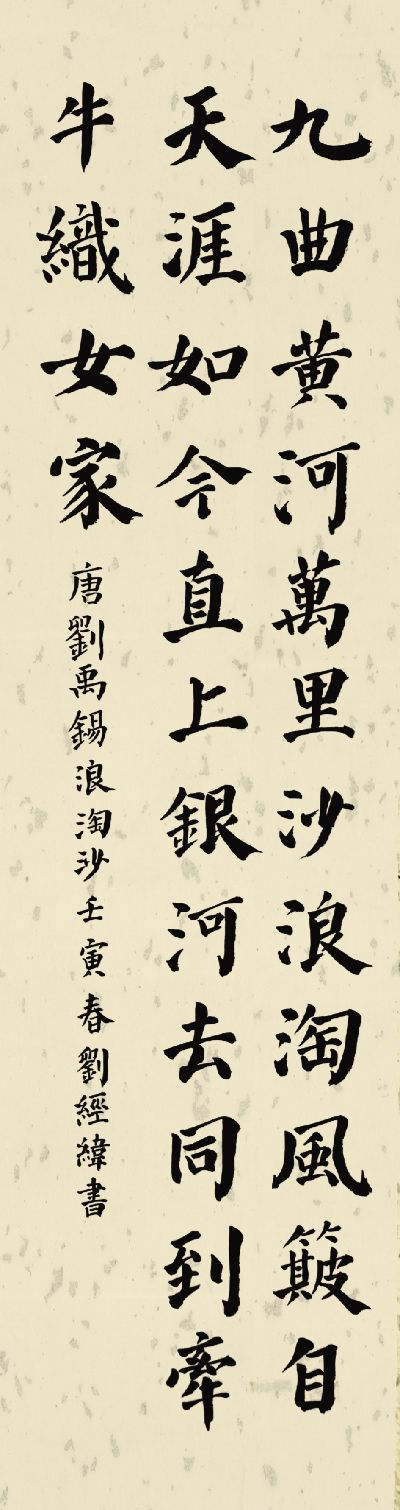 九曲黄河萬里沙浪淘風簸自
天涯如今直上銀河去同到牽
牛織女家
唐劉禹錫浪淘沙壬寅春劉經緯書